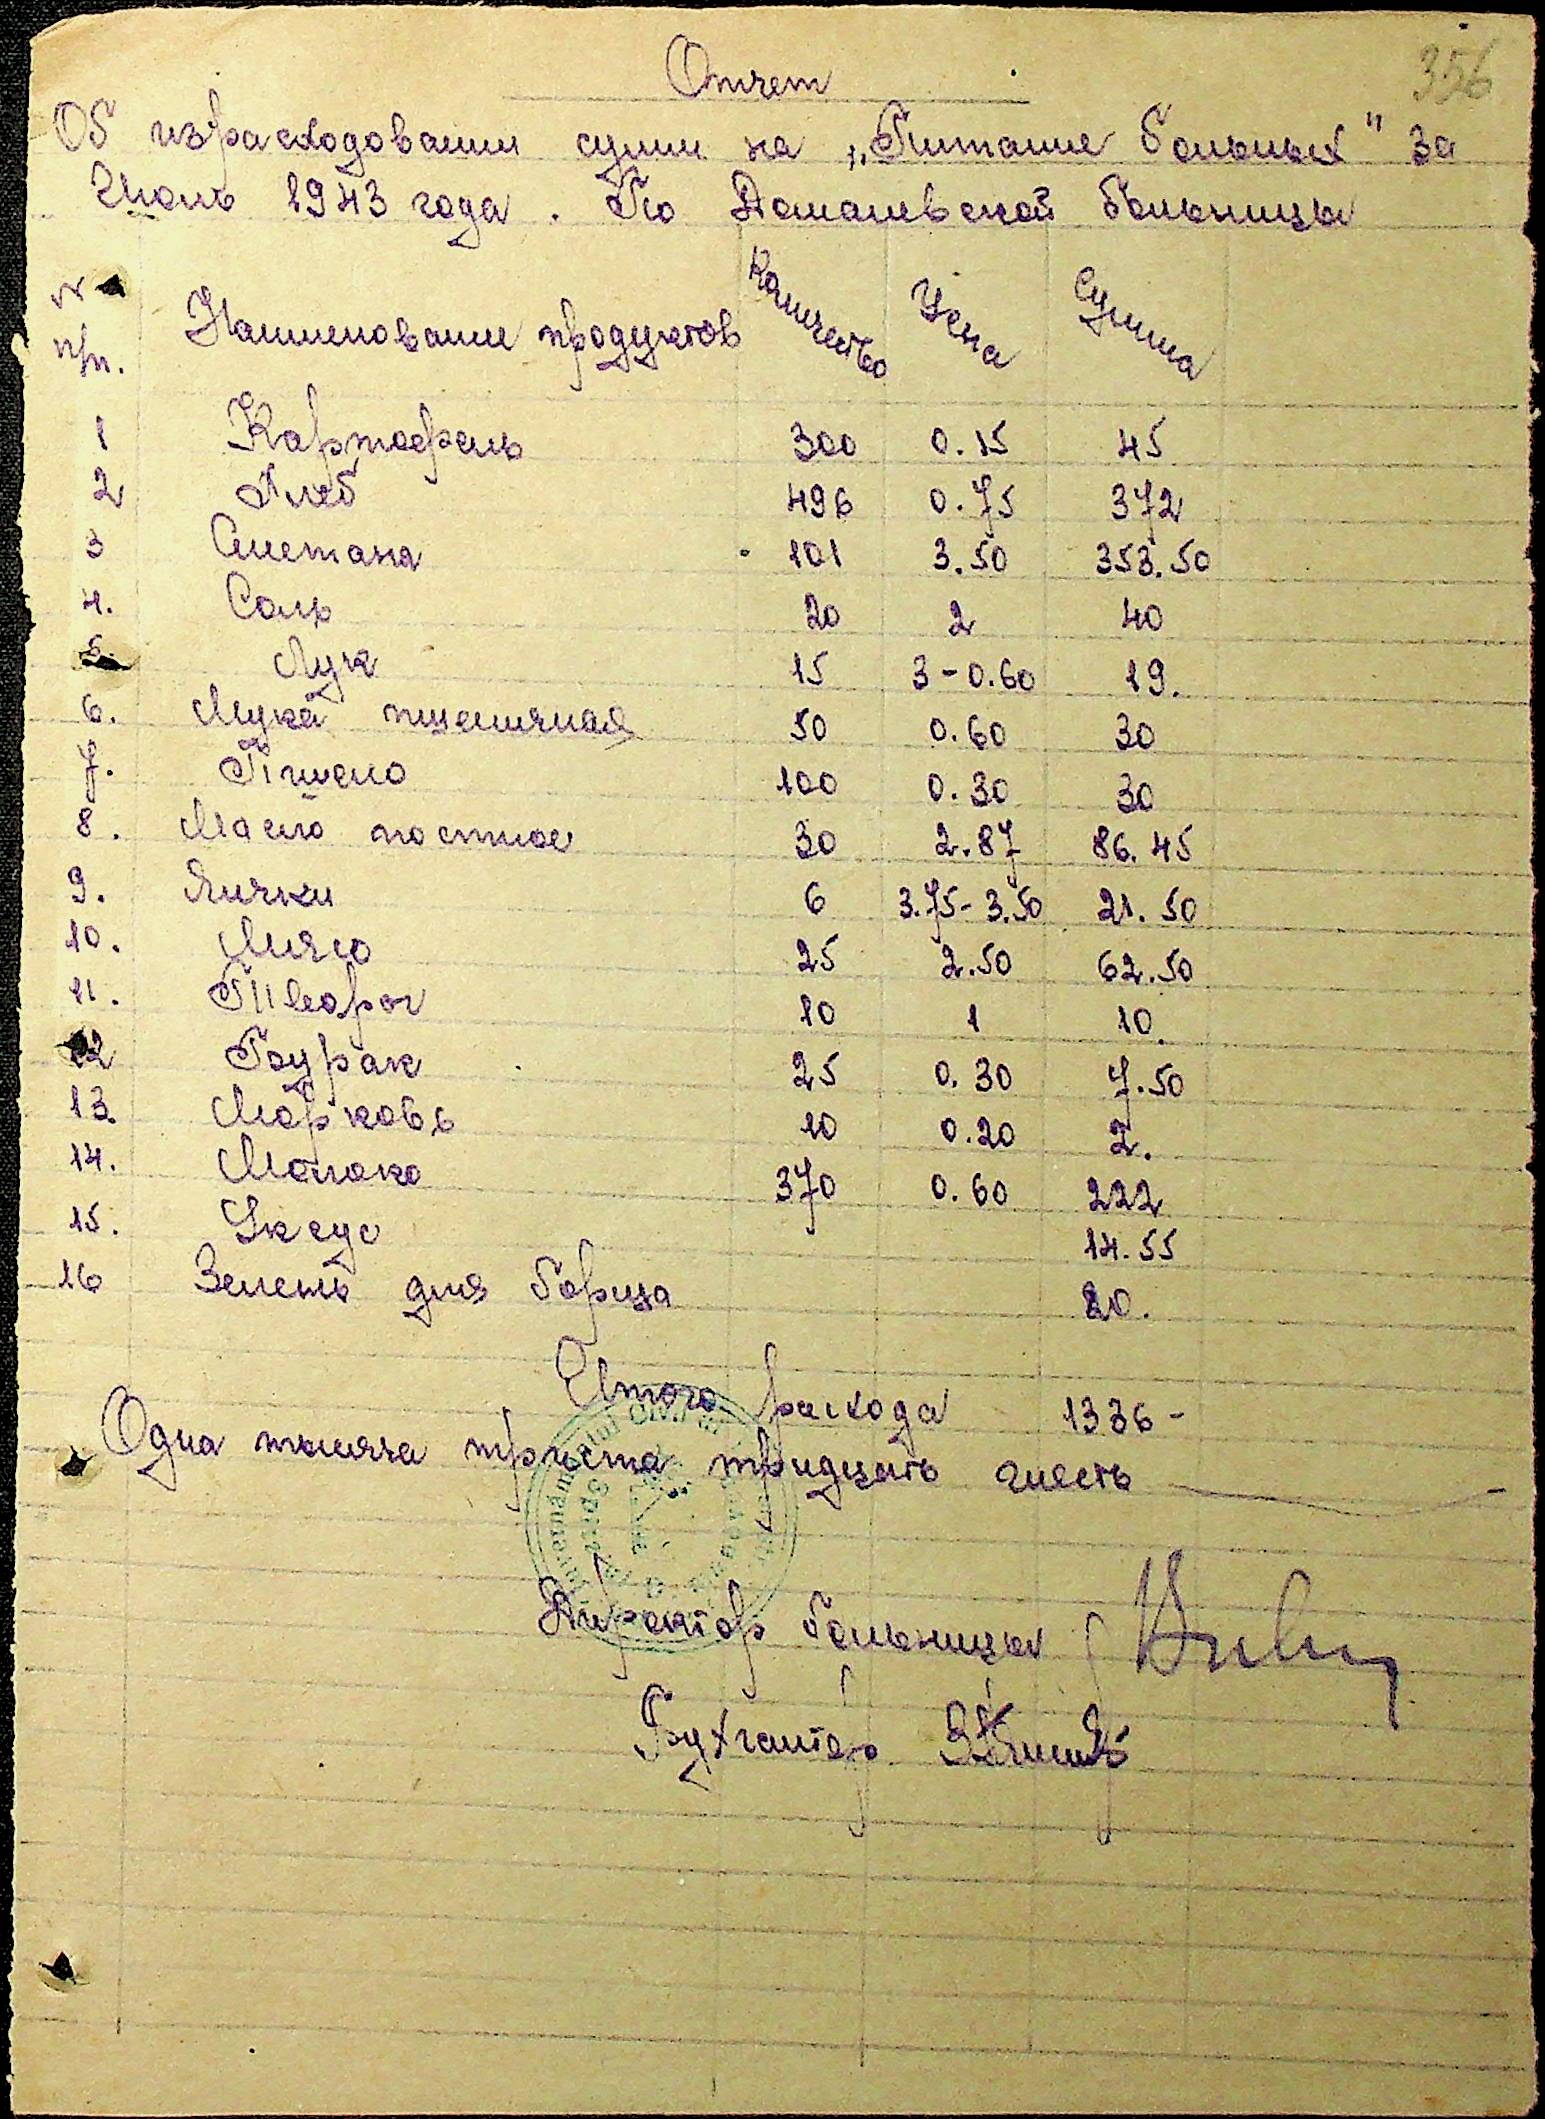 356
Отчет
Об израсходовании сумм на „Питание больных" за
Июль 1943 года. По Доманевской больницы
№ п/п. Наименование продуктов Количество Цена Сумма
1 Картофель 300 0.15 45
2 Хлеб 496 0.75 372
3 Сметана 101 3.50 353.50
4. Соль 20 2 40
5. Лук 15 3-0.60 19.
6. Мука пшеничная 50 0.60 30
7. Пшено 100 0.30 30
8. Масло постное 30 2.87 86.45
9. Яички 6 3.75-3.50 21.50
10. Мясо 25 2.50 62.50
11. Творог 10 1 10.
12 Бурак 25 0.30 7.50
13. Морковь 10 0.20 2.
14. Молоко 370 0.60 222
15. Уксус 14.55
16 Зелень для борща 20.
Итого расхода 1336-
Одна тысяча триста тридцать шесть
Директор больницы
Бухгалтер